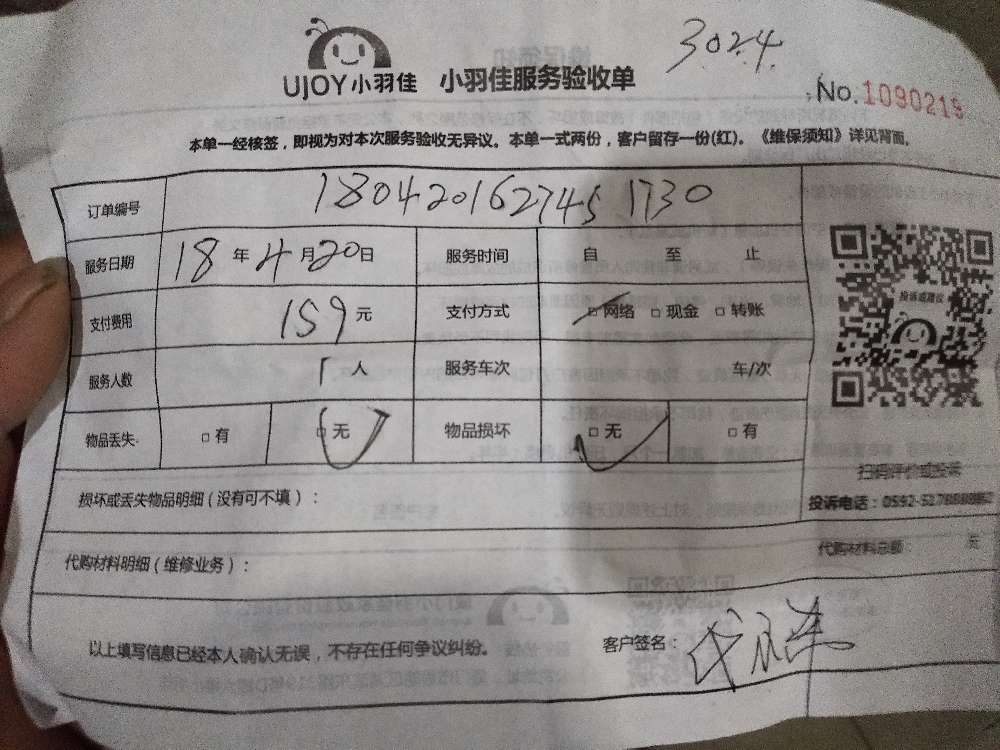 3024.
UJOY小羽佳 小羽佳服务验收单
No.1090219
本单一经核签，即视为对本次服务验收无异议。本单一式两份，客户留存一份(红)。《维保须知》详见背面。
订单编号 180420162745 1730
服务日期 18年4月20日 服务时间 自 至 止
支付费用 159元 支付方式 □网络 □现金 □转账
投诉或建议
服务人数 1人 服务车次 车/次
物品丢失 □有 □无 物品损坏 □无 □有
扫码评价或投诉
损坏或丢失物品明细（没有可不填）：
投诉电话：0592-
代购材料明细（维修业务）： 代购材料总额
以上填写信息已经本人确认无误，不存在任何争议纠纷。 客户签名：